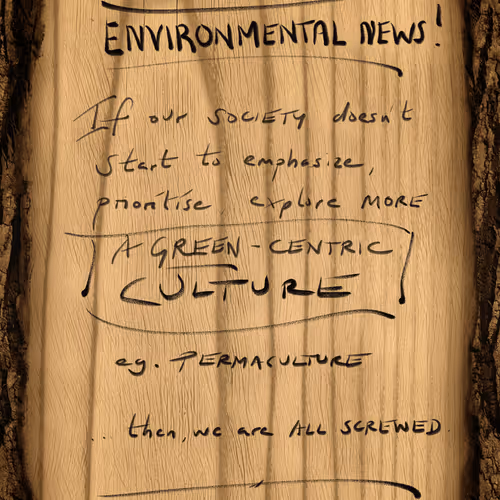 ENVIRONMENTAL NEWS!
If our SOCIETY doesn't
start to emphasize,
prioritise, explore MORE
A GREEN-CENTRIC
CULTURE
eg. PERMACULTURE
... then, we are ALL SCREWED.